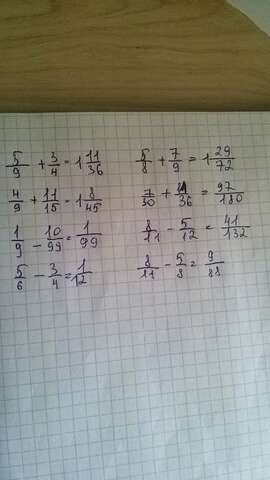 5/9 + 3/4 = 1 11/36
4/9 + 11/15 = 1 8/45
1/9 - 10/99 = 1/99
5/6 - 3/4 = 1/12
5/8 + 7/9 = 1 29/72
7/30 + 11/36 = 97/180
8/11 - 5/12 = 41/132
8/11 - 5/8 = 9/88